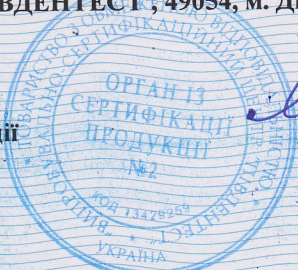 ВДЕНТЕСТ", 49054, м. Д
ції
ТОВАРИСТВО З ОБМЕЖЕНОЮ ВІДПОВІДАЛЬНІСТЮ
ВИПРОБУВАЛЬНО-СЕРТИФІКАЦІЙНИЙ ЦЕНТР "ПІВДЕНТЕСТ"
ОРГАН ІЗ
СЕРТИФІКАЦІЇ
ПРОДУКЦІЇ
№2
КОД 13429259
УКРАЇНА